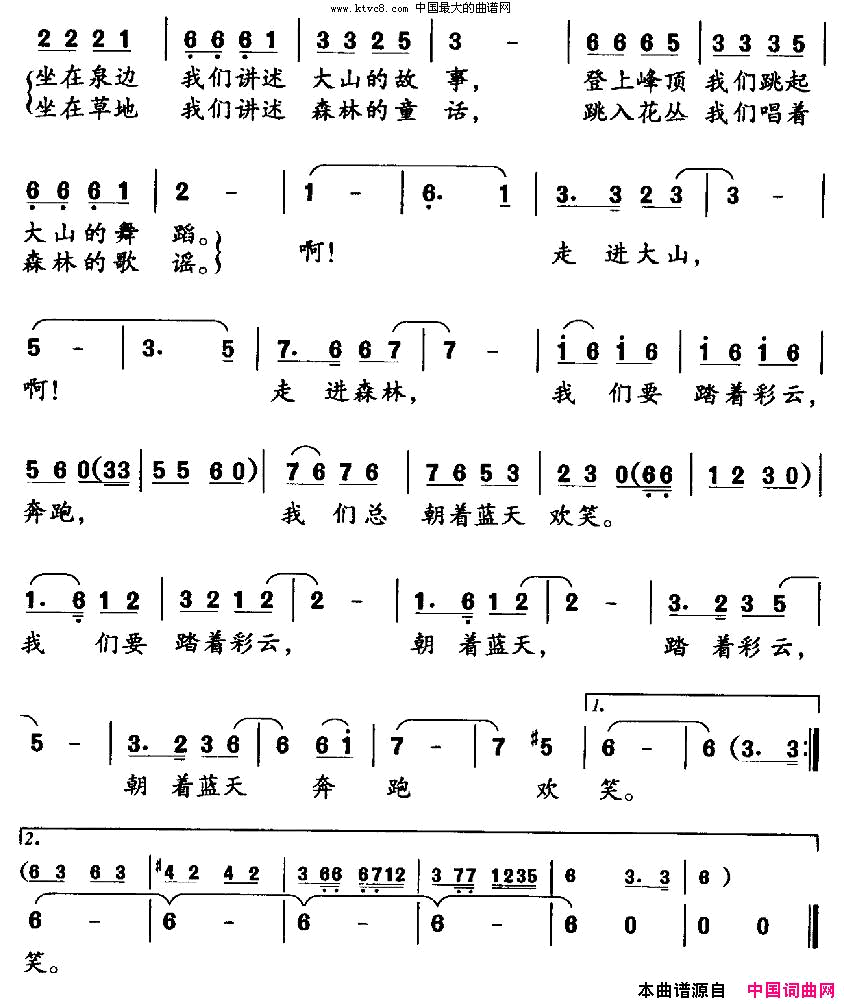 www.ktvc8.com 中国最大的曲谱网
2 2 2 1 | 6 6 6 1 | 3 3 2 5 | 3 - | 6 6 6 5 | 3 3 3 5 |
坐在泉边 我们讲述 大山的故 事, 登上峰顶 我们跳起
坐在草地 我们讲述 森林的童 话, 跳入花丛 我们唱着
6 6 6 1 | 2 - | 1 - | 6. 1 | 3. 3 2 3 | 3 - |
大山的舞 蹈。 啊! 走 进大山,
森林的歌 谣。
5 - | 3. 5 | 7. 6 6 7 | 7 - | i 6 i 6 | i 6 i 6 |
啊! 走 进森林, 我 们要 踏着彩云,
5 6 0 (33 | 5 5 6 0) | 7 6 7 6 | 7 6 5 3 | 2 3 0 (66 | 1 2 3 0) |
奔跑, 我 们总 朝着蓝天 欢笑。
1. 6 1 2 | 3 2 1 2 | 2 - | 1. 6 1 2 | 2 - | 3. 2 3 5 |
我 们要 踏着彩云, 朝 着蓝天, 踏 着彩云,
1.
5 - | 3. 2 3 6 | 6 6 i | 7 - | 7 #5 | 6 - | 6 (3. 3 :|
朝 着蓝天 奔 跑 欢 笑。
2.
(6 3 6 3 | #4 2 4 2 | 3 66 6712 | 3 77 1235 | 6 3. 3 | 6 )
6 - | 6 - | 6 - | 6 - | 6 0 | 0 0
笑。
本曲谱源自 中国词曲网